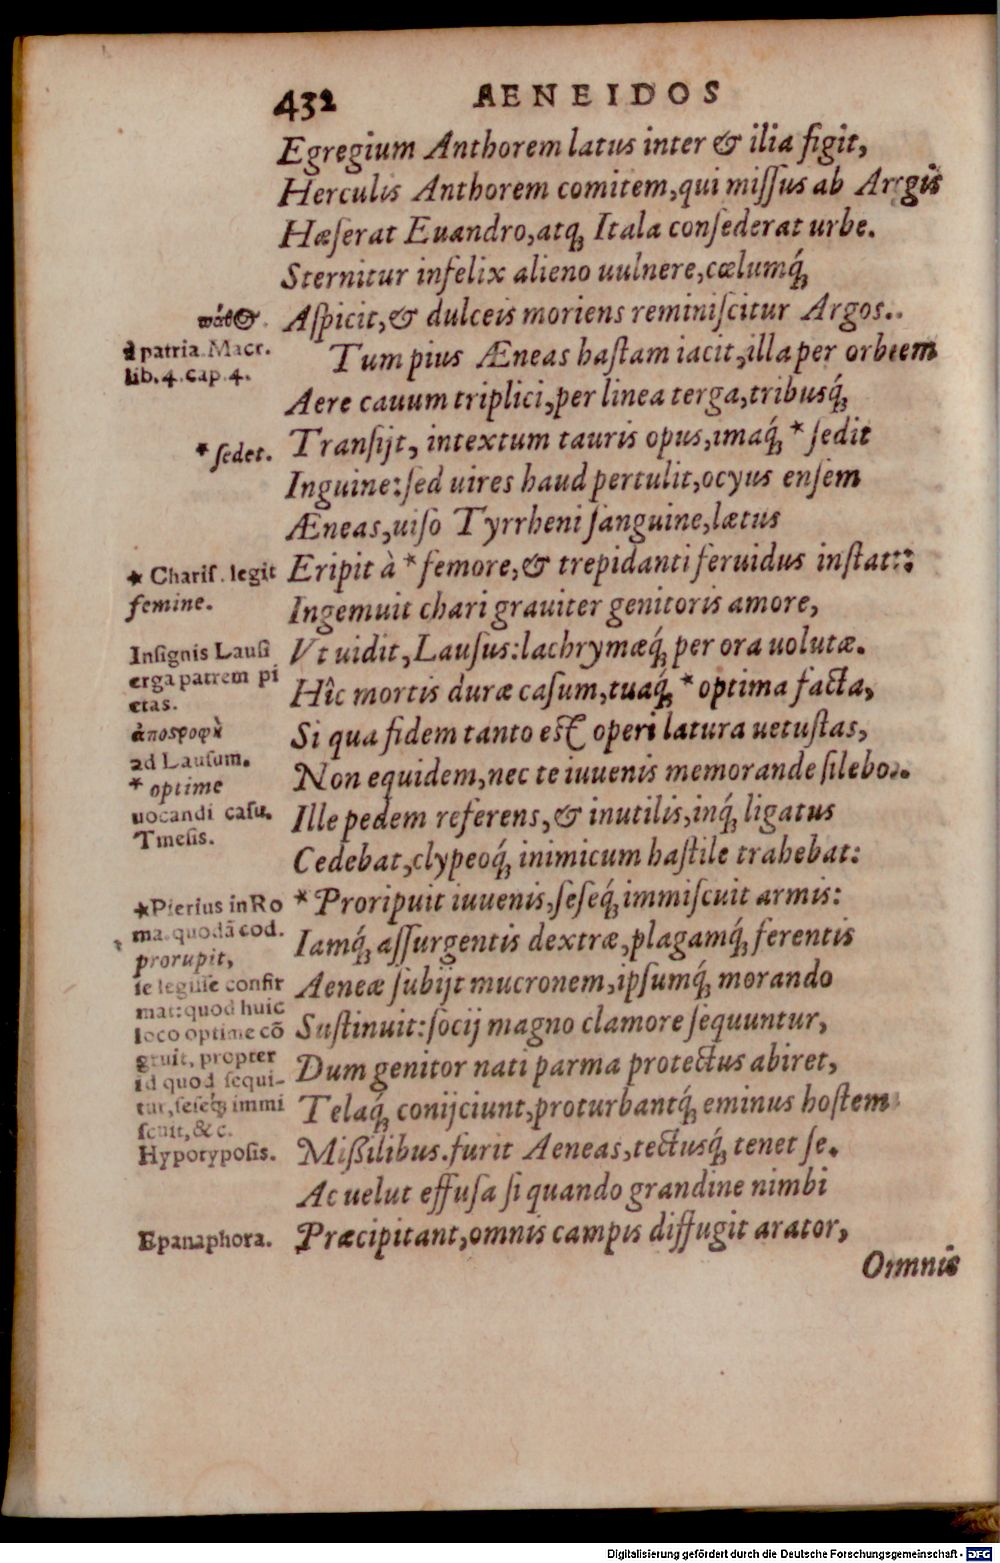 432 AENEIDOS
Egregium Anthorem latus inter & ilia figit,
Herculis Anthorem comitem, qui miſſus ab Argis
Hæſerat Euandro, atq; Itala conſederat urbe.
Sternitur infelix alieno uulnere, cælumq́;
Aſpicit, & dulceis moriens reminiſcitur Argos..
Tum pius Æneas haſtam iacit, illa per orbem
Aere cauum triplici, per linea terga, tribusq́;
Tranſijt, intextum tauris opus, imaq́; * ſedit
Inguine: ſed uires haud pertulit, ocyus enſem
Æneas, uiſo Tyrrheni ſanguine, lætus
Eripit à * femore, & trepidanti feruidus inſtat::
Ingemuit chari grauiter genitoris amore,
Vt uidit, Lauſus: lachrymæq́; per ora uolutæ.
Hîc mortis duræ caſum, tuaq́; * optima facta,
Si qua fidem tanto eſt operi latura uetuſtas,
Non equidem, nec te iuuenis memorande ſilebo..
Ille pedem referens, & inutilis, inq́; ligatus
Cedebat, clypeoq́; inimicum haſtile trahebat:
* Proripuit iuuenis, ſeſeq́; immiſcuit armis:
Iamq́; aſſurgentis dextræ, plagamq́; ferentis
Aeneæ ſubijt mucronem, ipſumq́; morando
Suſtinuit: ſocij magno clamore ſequuntur,
Dum genitor nati parma protectus abiret,
Telaq́; conijciunt, proturbantq́; eminus hoſtem
Mißilibus. furit Aeneas, tectusq́; tenet ſe.
Ac uelut effuſa ſi quando grandine nimbi
Præcipitant, omnis campis diffugit arator,
Omnis
πάθ@.
à patria. Macr.
lib. 4. cap. 4.
* ſedet.
* Chariſ. legit
femine.
Inſignis Lauſi
erga patrem pi
etas.
ἀποστροφὴ
ad Lauſum.
* optime
uocandi caſu.
Tmeſis.
* Pierius in Ro
ma. quodã cod.
prorupit,
ſe legiſſe confir
mat: quod huic
loco optime cõ
gruit, propter
id quod ſequi-
tur, ſeſeq́; immi
ſcuit, &c.
Hypotypoſis.
Epanaphora.
Digitalisierung gefördert durch die Deutsche Forschungsgemeinschaft - DFG